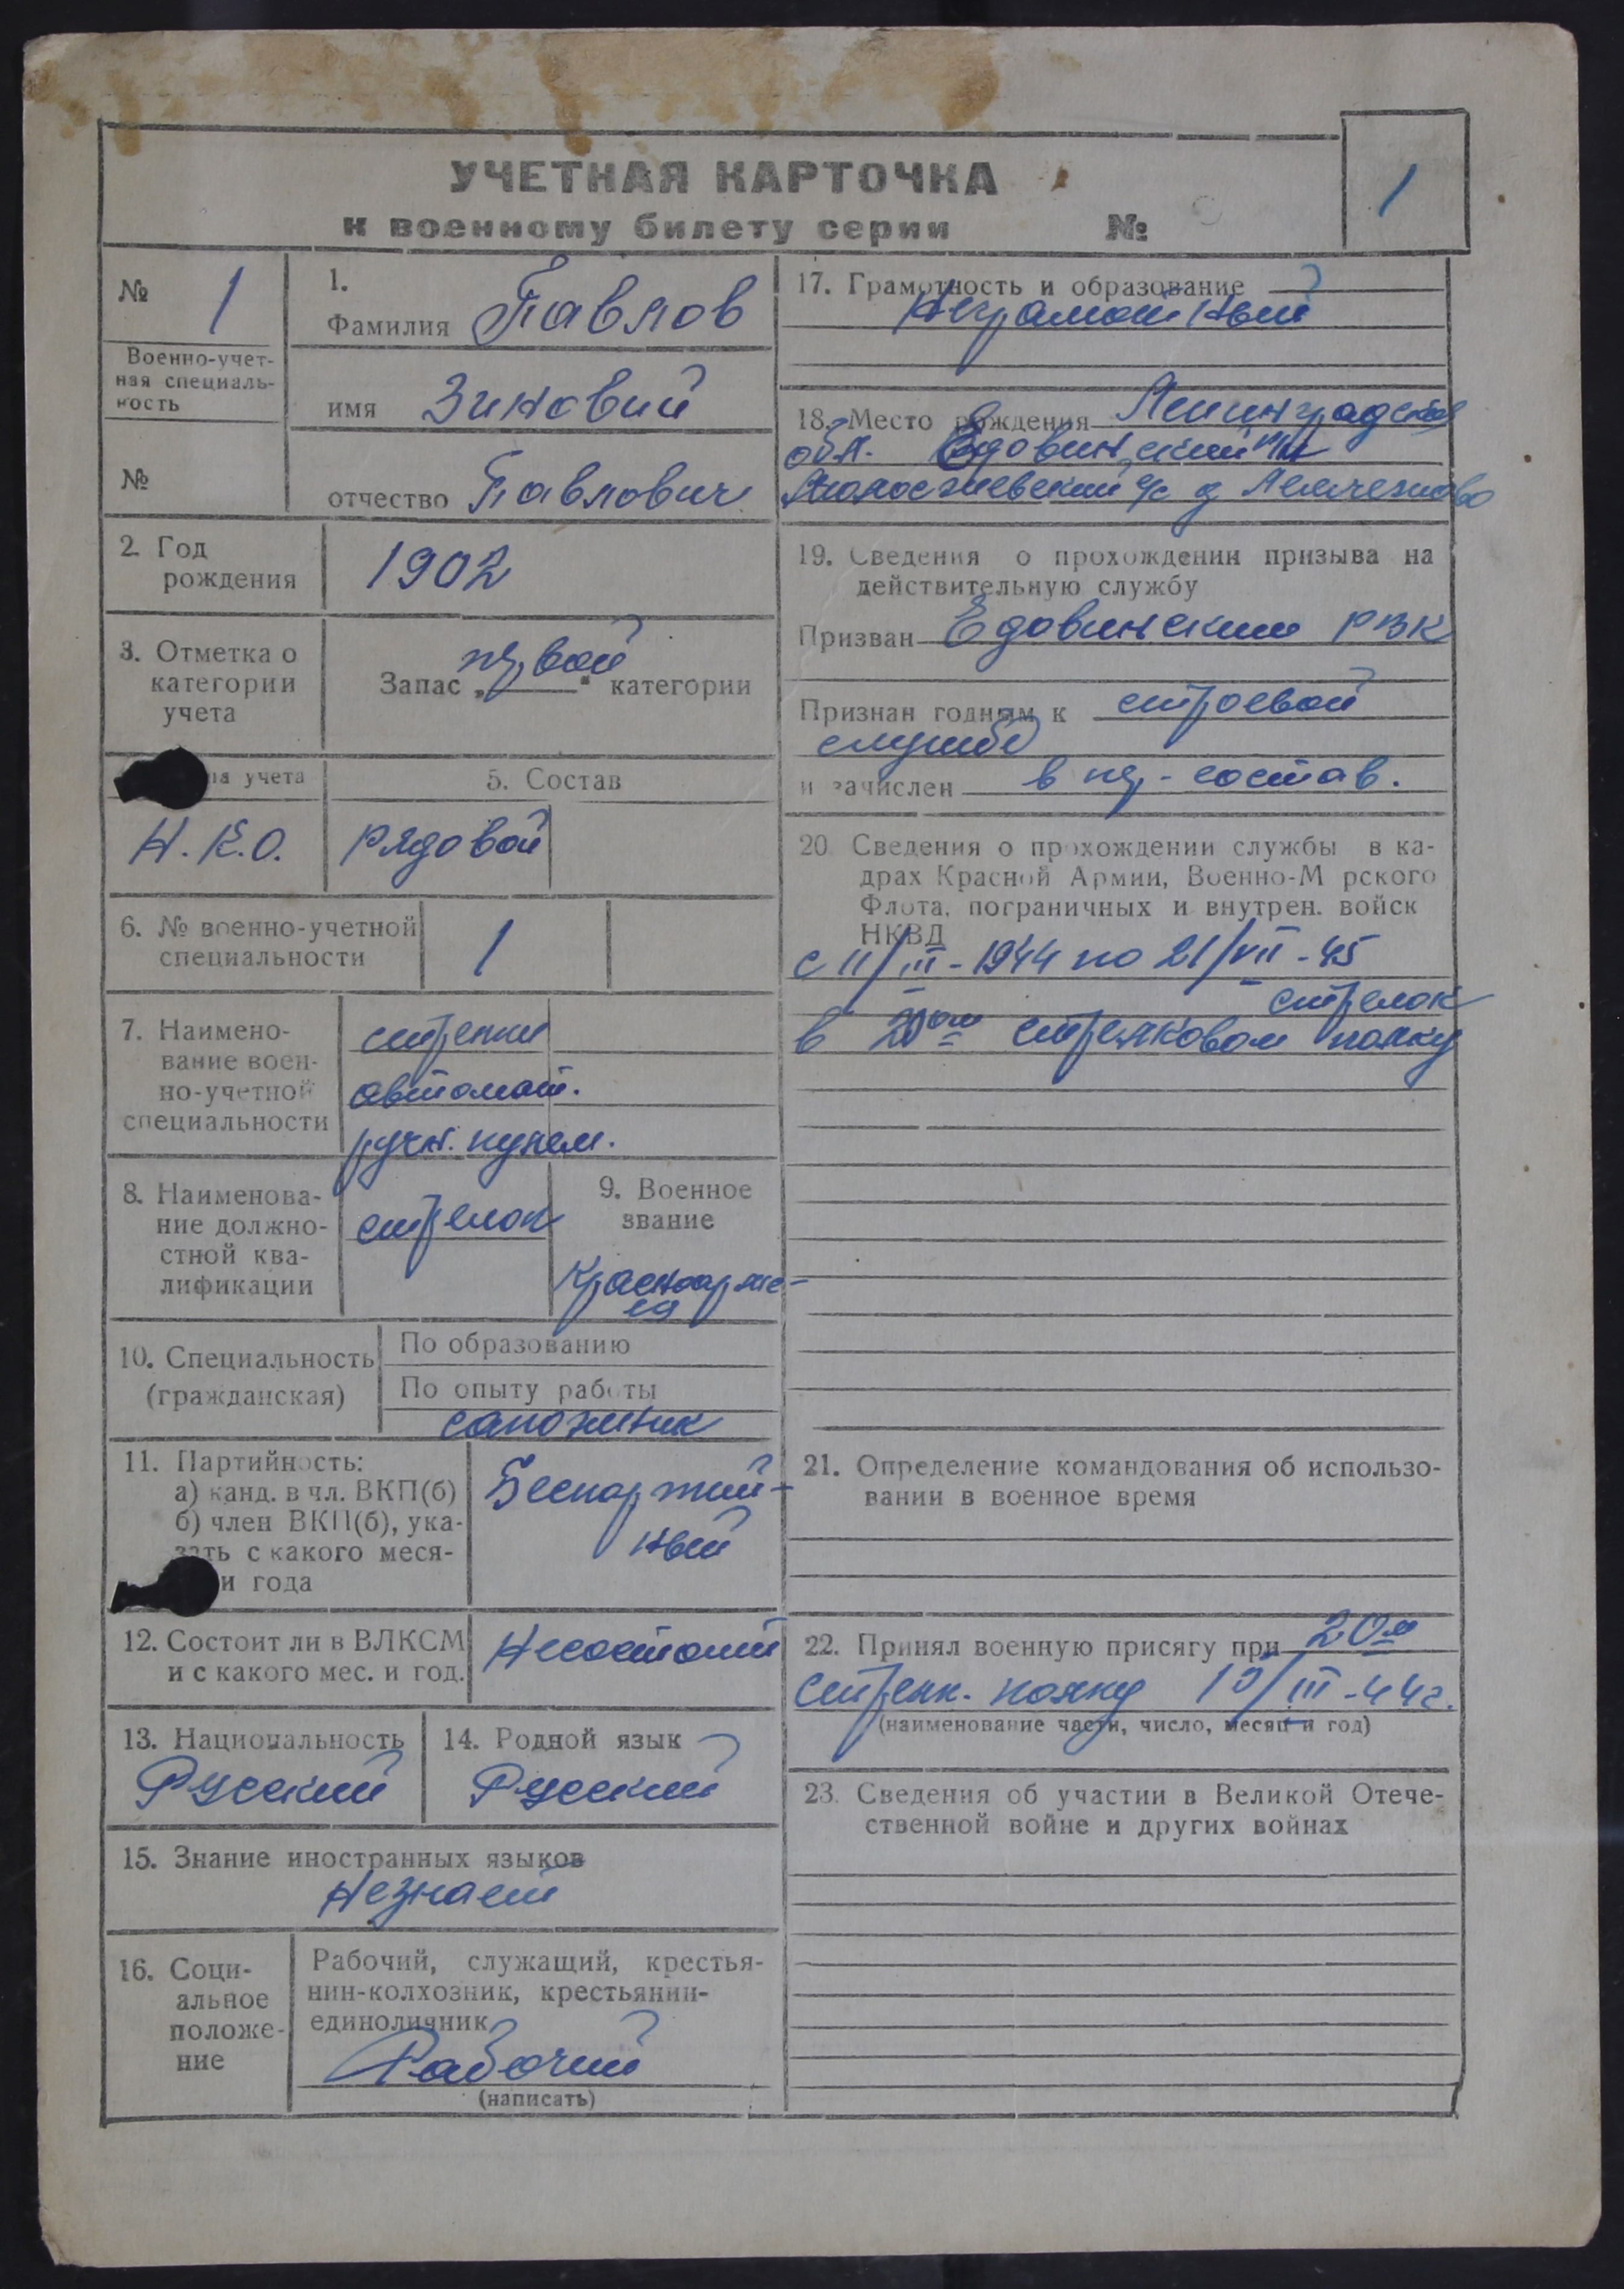 УЧЕТНАЯ КАРТОЧКА
к военному билету серии №
1
№ 1
Военно-учет-
ная специаль-
ность
№
1.
Фамилия Павлов
имя Зиновий
отчество Павлович
2. Год
рождения
1902
3. Отметка о
категории
учета
Запас „первой" категории
на учета
Н.К.О.
5. Состав
рядовой
6. № военно-учетной
специальности
1
7. Наимено-
вание воен-
но-учетной
специальности
стрелки
автомат.
ручн. пулем.
8. Наименова-
ние должно-
стной ква-
лификации
стрелок
9. Военное
звание
Красноарме-
ец
10. Специальность
(гражданская)
По образованию
По опыту работы
сапожник
11. Партийность:
а) канд. в чл. ВКП(б)
б) член ВКП(б), ука-
зать с какого меся-
и года
Беспартий-
ный
12. Состоит ли в ВЛКСМ
и с какого мес. и год.
Несостоит
13. Национальность
Русский
14. Родной язык
Русский
15. Знание иностранных языков
Незнает
16. Соци-
альное
положе-
ние
Рабочий, служащий, крестья-
нин-колхозник, крестьянин-
единоличник
Рабочий
(написать)
17. Грамотность и образование
Неграмотный
18. Место рождения Ленинградская
обл. Едовинский
с/с д
19. Сведения о прохождении призыва на
действительную службу
Призван Едовинским РВК
Признан годным к строевой
службе
и зачислен в ряд-состав.
20 Сведения о прохождении службы в ка-
драх Красной Армии, Военно-М рского
Флота, пограничных и внутрен. войск
НКВД
с 11/III-1944 по 21/VII-45
стрелок
в 20ом стрелковом полку
21. Определение командования об использо-
вании в военное время
22. Принял военную присягу при 20м
стрелк. полку 15/III-44г.
(наименование части, число, месяц и год)
23. Сведения об участии в Великой Отече-
ственной войне и других войнах